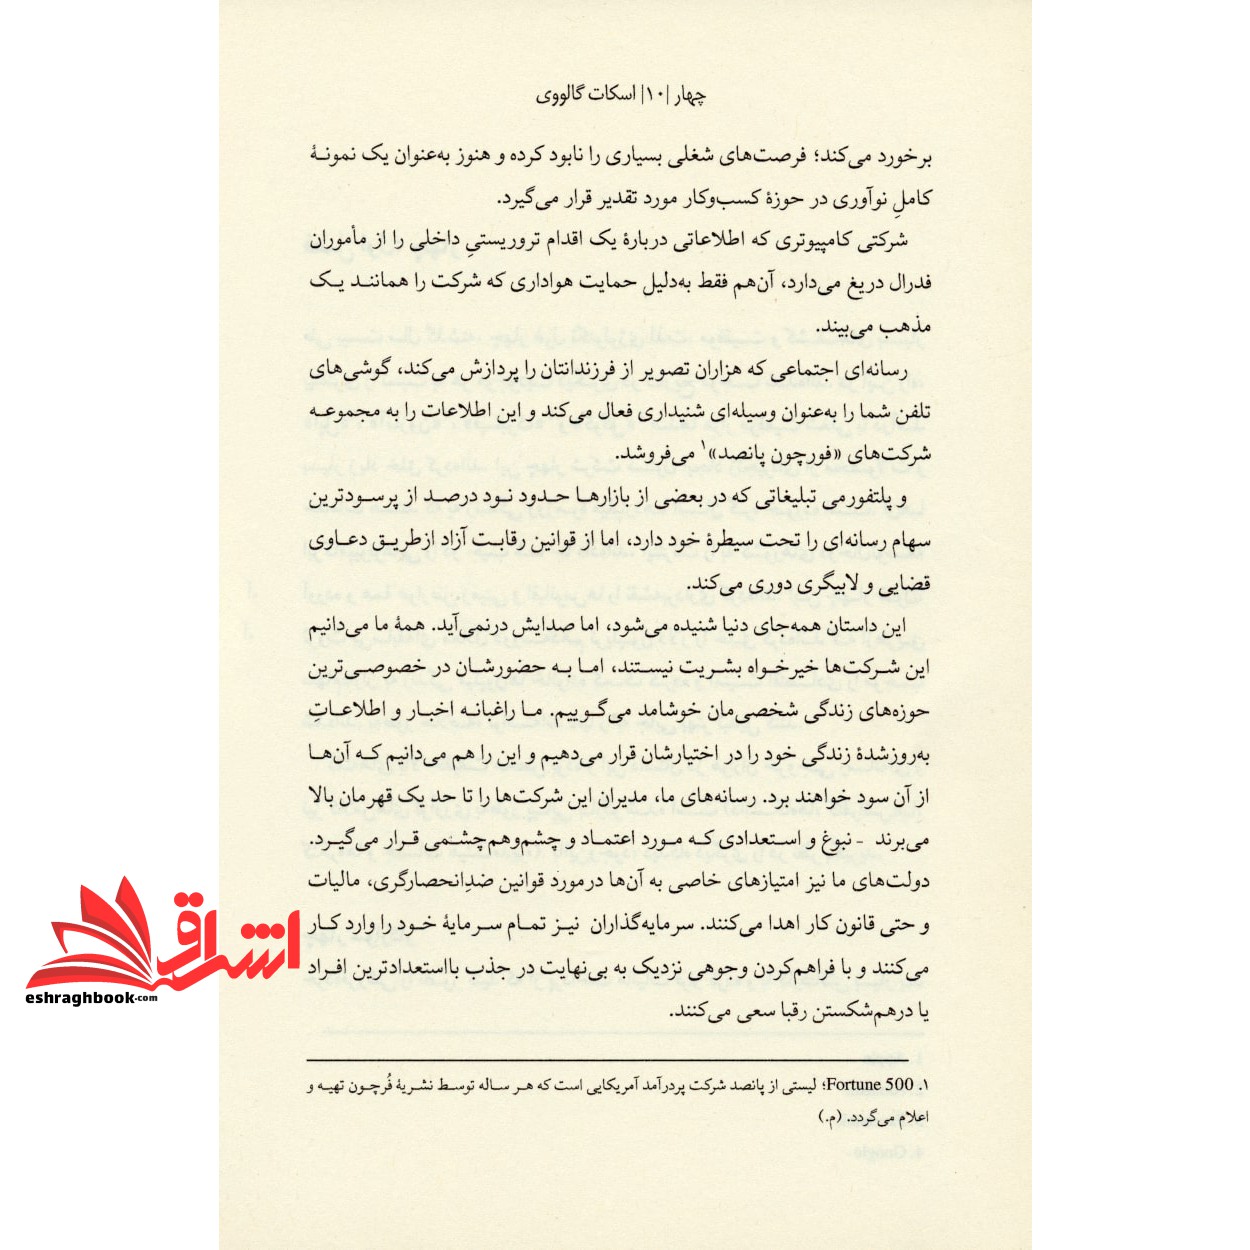 چهار |۱۰| اسکات گالووی
برخورد می‌کند؛ فرصت‌های شغلی بسیاری را نابود کرده و هنوز به‌عنوان یک نمونهٔ
کاملِ نوآوری در حوزهٔ کسب‌وکار مورد تقدیر قرار می‌گیرد.
شرکتی کامپیوتری که اطلاعاتی دربارهٔ یک اقدام تروریستیِ داخلی را از مأموران
فدرال دریغ می‌دارد، آن‌هم فقط به‌دلیل حمایت هواداری که شرکت را هماننـد یـک
مذهب می‌بیند.
رسانه‌ای اجتماعی که هزاران تصویر از فرزندانتان را پردازش می‌کند، گوشی‌های
تلفن شما را به‌عنوان وسیله‌ای شنیداری فعال می‌کند و این اطلاعات را به مجموعـه
شرکت‌های «فورچون پانصد»۱ می‌فروشد.
و پلتفورمی تبلیغاتی که در بعضی از بازارهـا حـدود نـود درصـد از پرسـودترین
سهام رسانه‌ای را تحت سیطرهٔ خود دارد، اما از قوانین رقابـت آزاد ازطریـق دعـاوی
قضایی و لابیگری دوری می‌کند.
این داستان همه‌جای دنیا شنیده می‌شود، اما صدایش درنمی‌آید. همهٔ ما می‌دانیم
این شـرکت‌ها خیرخـواه بشـریت نیسـتند، امـا بـه حضورشـان در خصوصـی‌ترین
حوزه‌های زندگی شخصی‌مان خوشامد می‌گـوییم. مـا راغبانـه اخبـار و اطلاعـاتِ
به‌روزشدهٔ زندگی خود را در اختیارشان قرار می‌دهیم و این را هم می‌دانیم کـه آن‌هـا
از آن سود خواهند برد. رسانه‌های ما، مدیران این شرکت‌ها را تا حد یک قهرمان بالا
می‌برند - نبوغ و اسـتعدادی کـه مـورد اعتمـاد و چشم‌وهم‌چشـمی قـرار می‌گیـرد.
دولت‌های ما نیز امتیازهای خاصی به آن‌ها درمورد قوانین ضدِانحصارگری، مالیات
و حتی قانون کار اهدا می‌کنند. سرمایه‌گذاران نیـز تمـام سـرمایهٔ خـود را وارد کـار
می‌کنند و با فراهم‌کردن وجوهی نزدیک به بی‌نهایت در جذب بااستعدادترین افـراد
یا درهم‌شکستن رقبا سعی می‌کنند.
۱. Fortune 500؛ لیستی از پانصد شرکت پردرآمد آمریکایی است که هـر سـاله توسـط نشـریهٔ فُرچـون تهیـه و
اعلام می‌گردد. (م.)
اشراق
eshraghbook.com